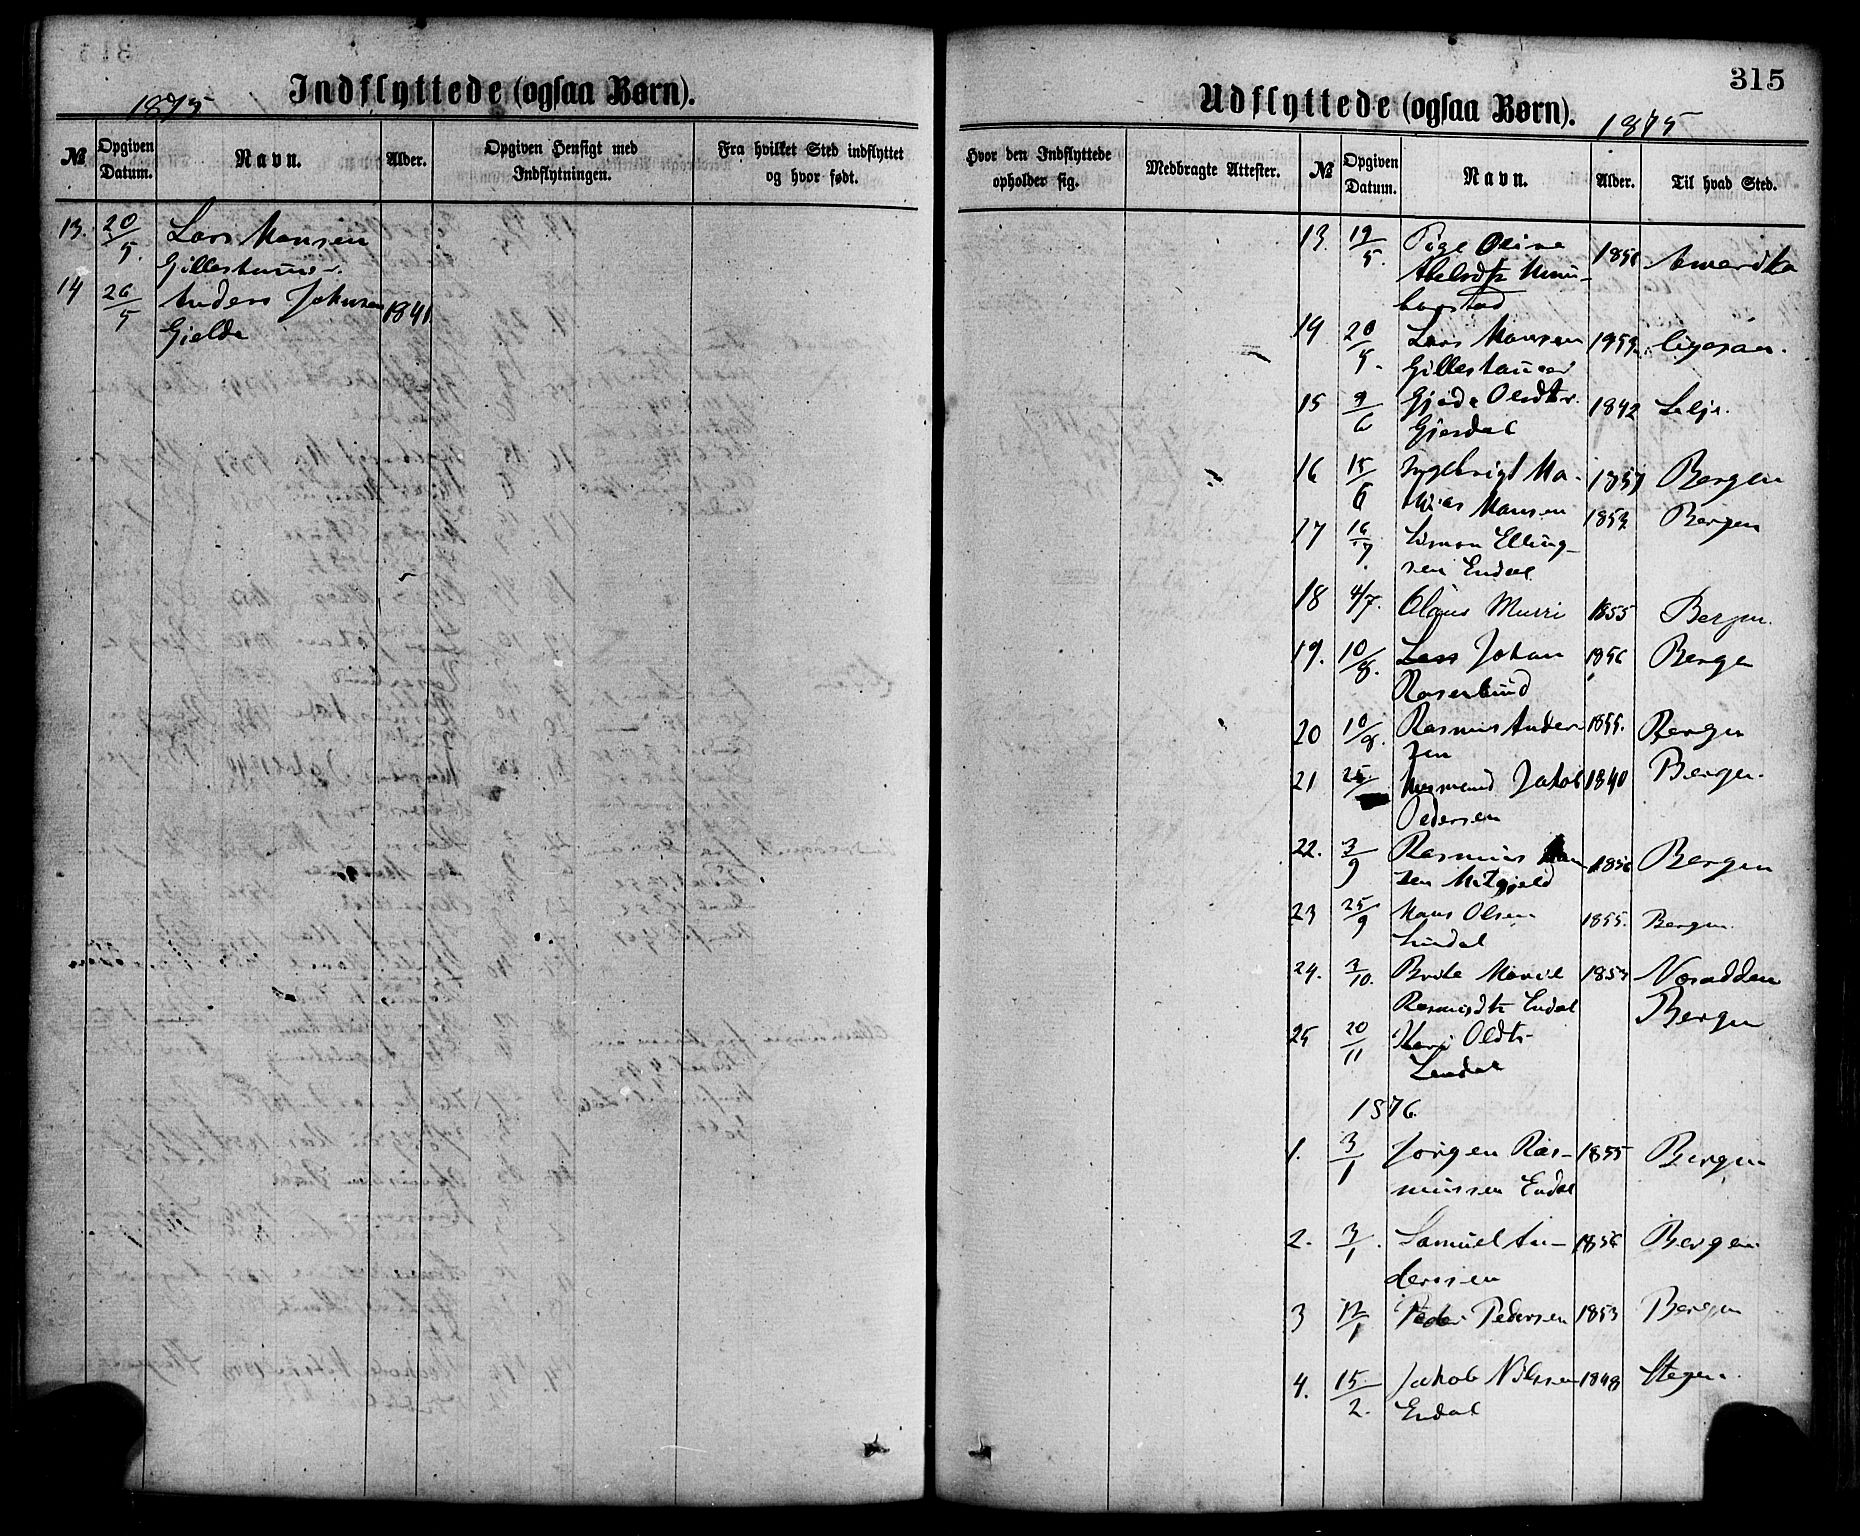 Indflyttede (ogsaa Børn).
1875
№ Opgiven Datum. Navn. Alder. Opgiven Hensigt med Indflytningen. Fra hvilket Sted indflyttet og hvor født.
13. 20/5. Lars Hansen
14 26/5 Anders Johnsen 1841.
Gjelde
315
Udflyttede (ogsaa Børn).
1875
Hvor den Indflyttede opholder sig. Medbragte Attester. № Opgiven Datum. Navn. Alder. Til hvad Sted.
13. 19/5. Pige Oline Amerika
14 20/5. Lars Hansen
15 9/6 Olsdtr. 1842 Selje.
Gjesdal
16 15/6 Ingebrigt Ma- 1857 Bergen
thias Hansen
17 16/7. Simon Elling- 1853 Bergen
sen Endal
18 4/7. Olaus Murri 1855 Bergen.
19. 10/8. Lars Johan 1856 Bergen
Rosenlund
20 10/8. Rasmus Ander- 1855. Bergen
sen
21 25/ Jakob 1840 Bergen.
Pedersen
22. 3/9 Rasmus 1856 Bergen
sen
23 25/9 Hans Olsen 1855. Bergen
Lindal
24. 3/10. Brite Marie 1853
Rasmusdtr Endal
25 20/11 Oldtr Bergen
1876.
1. 3/1 Jørgen Ras- 1855 Bergen
mussen Endal
2. 3/1. Samuel An- 1856 Bergen.
derssen
3 12/1 Peder Pedersen 1853 Bergen
4. 15/2. Jakob Nilssen 1848
Endal